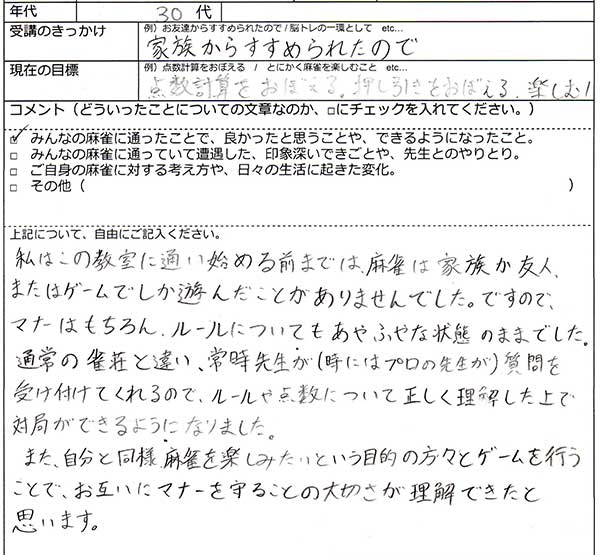 年代 30代
受講のきっかけ 例）お友達からすすめられたので / 脳トレの一環として　etc…
家族からすすめられたので
現在の目標 例）点数計算をおぼえる　/　とにかく麻雀を楽しむこと　etc…
点数計算をおぼえる。押し引きをおぼえる。楽しむ！
コメント（どういったことについての文章なのか、□にチェックを入れてください。）
☑ みんなの麻雀に通ったことで、良かったと思うことや、できるようになったこと。
□ みんなの麻雀に通っていて遭遇した、印象深いできごとや、先生とのやりとり。
□ ご自身の麻雀に対する考え方や、日々の生活に起きた変化。
□ その他（　　　　　　　　）
上記について、自由にご記入ください。
私はこの教室に通い始める前までは、麻雀は家族か友人、
またはゲームでしか遊んだことがありませんでした。ですので、
マナーはもちろん、ルールについてもあやふやな状態のままでした。
通常の雀荘と違い、常時先生が（時にはプロの先生が）質問を
受け付けてくれるので、ルールや点数について正しく理解した上で
対局ができるようになりました。
また、自分と同様、麻雀を楽しみたいという目的の方々とゲームを行う
ことで、お互いにマナーを守ることの大切さが理解できたと
思います。